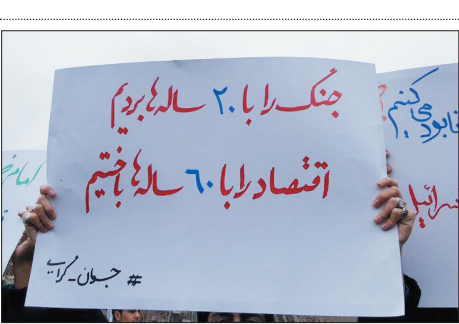 جنگ را با ۲۰ ساله ها بردیم
اقتصاد را با ۶۰ ساله ها باختیم
# جوان_گرایی
نابود می کنیم